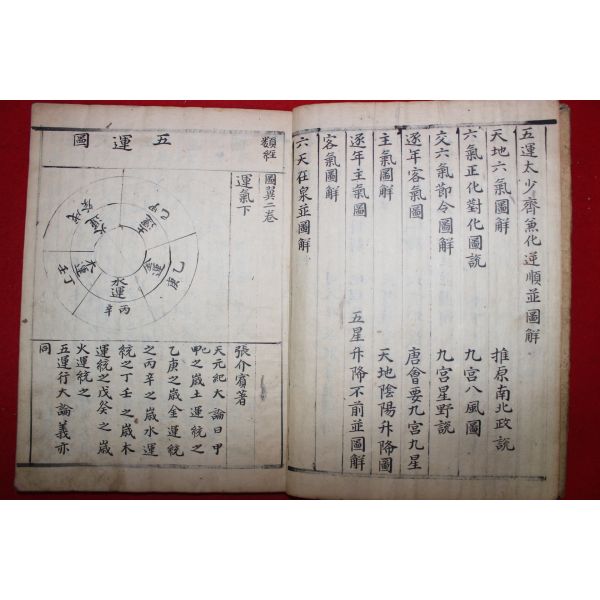 五運太少齊兼化逆順並圖解
天地六氣圖解
推原南北政說
六氣正化對化圖說
九宮八風圖
交六氣節令圖解
九宮星野說
逐年客氣圖
唐會要九宮九星
主氣圖解
天地陰陽升降圖
逐年主氣圖
五星升降不前並圖解
客氣圖解
六天在泉並圖解
類經
圖翼二卷
運氣下
張介賓著
五運圖
土運
甲己
金運
乙庚
水運
丙辛
木運
丁壬
火運
戊癸
天元紀大論曰甲
己
甲之歲土運統之
乙庚之歲金運統
之丙辛之歲水運
統之丁壬之歲木
運統之戊癸之歲
火運統之
五運行大論義亦
同